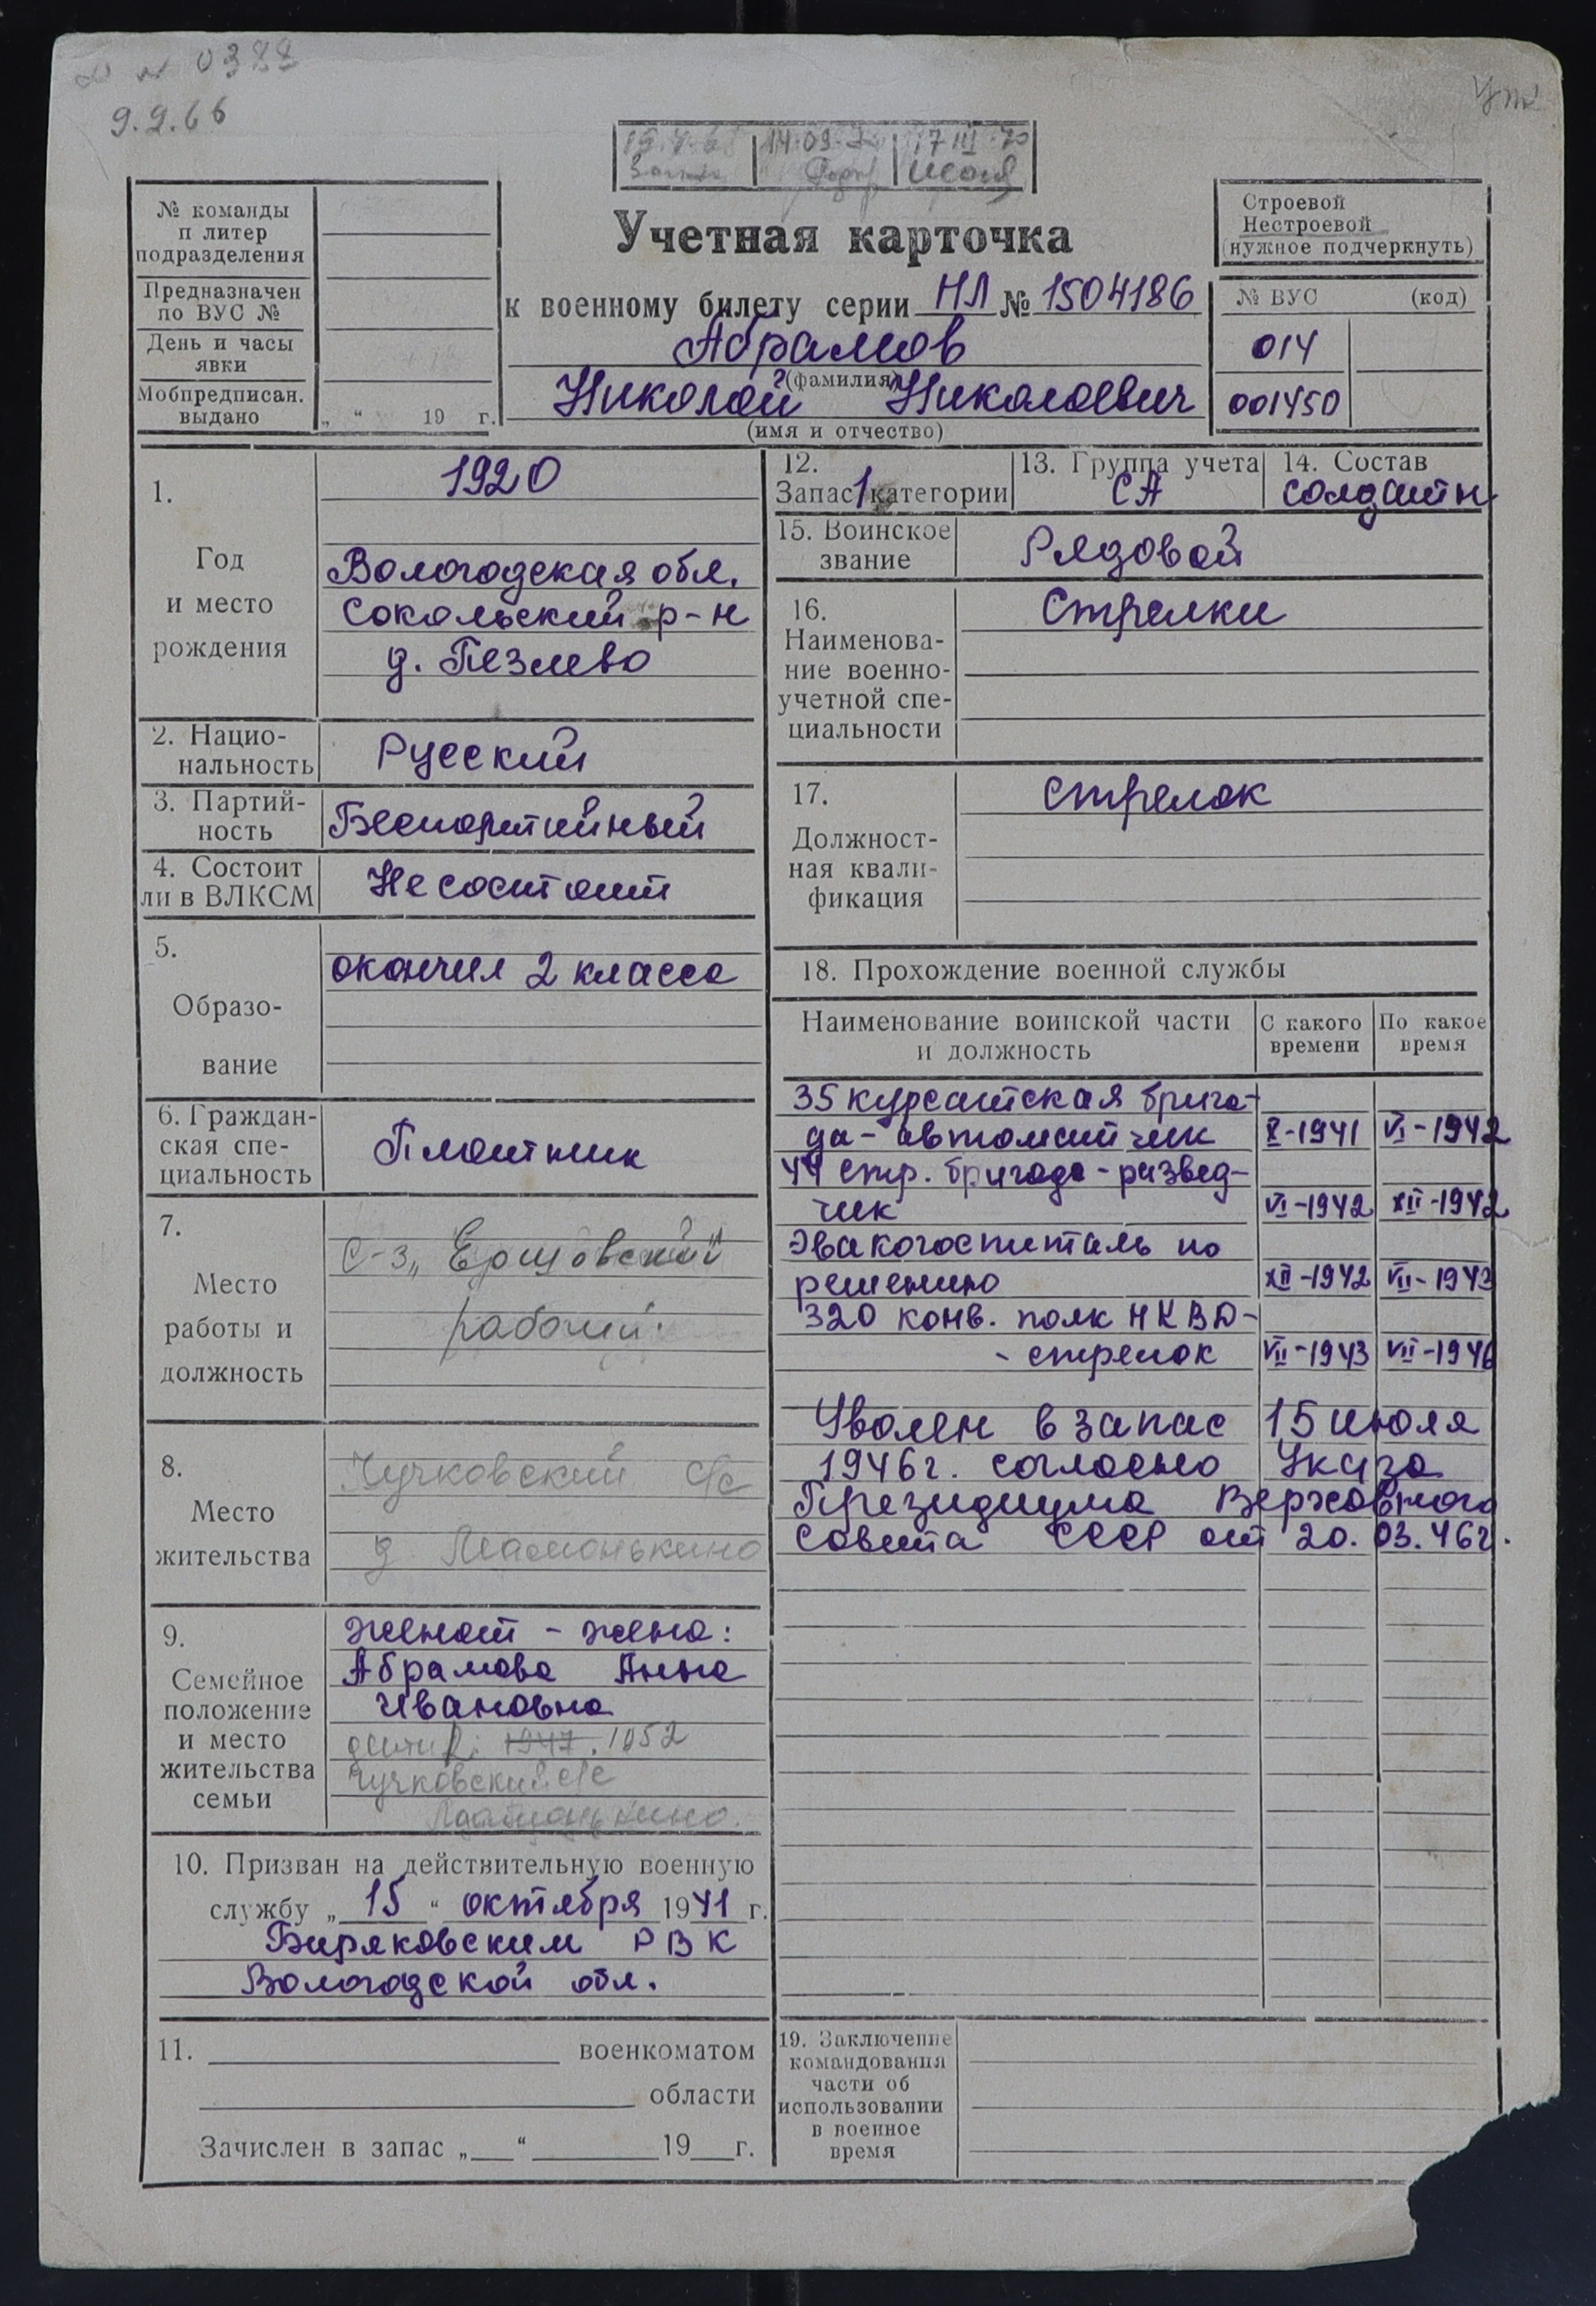 0388
9.9.66
14.09.
17 III 70
№ команды
п литер
подразделения
Предназначен
по ВУС №
День и часы
явки
Мобпредписан.
выдано
„ “ 19 г.
Учетная карточка
к военному билету серии НЛ № 1504186
Абрамов
(фамилия)
Николай Николаевич
(имя и отчество)
Строевой
Нестроевой
(нужное подчеркнуть)
№ ВУС (код)
014
001450
1.
Год
и место
рождения
1920
Вологодская обл.
Сокольский р-н
д. Пезлево
2. Нацио-
нальность
Русский
3. Партий-
ность
Беспартийный
4. Состоит
ли в ВЛКСМ
Не состоит
5.
Образо-
вание
окончил 2 класса
6. Граждан-
ская спе-
циальность
Плотник
7.
Место
работы и
должность
с-з „Ершовский“
рабочий.
8.
Место
жительства
Чучковский с/с
д. Мамонькино
9.
Семейное
положение
и место
жительства
семьи
женат - жена:
Абрамова Анна
Ивановна
дети 1947. 1952
Чучковский с/с
Мамонькино.
10. Призван на действительную военную
службу „ 15 “ октября 1941 г.
Биряковским РВК
Вологодской обл.
11. военкоматом
области
Зачислен в запас „ “ 19 г.
12.
Запас 1 категории
13. Группа учета
СА
14. Состав
солдатн
15. Воинское
звание
Рядовой
16.
Наименова-
ние военно-
учетной спе-
циальности
Стрелки
17.
Должност-
ная квали-
фикация
стрелок
18. Прохождение военной службы
Наименование воинской части
и должность
С какого
времени
По какое
время
35 курсантская брига-
да - автоматчик X-1941 VI-1942
44 стр. бригада - развед-
чик VI-1942 XII-1942
Эвакогоспиталь по
ранению XII-1942 VII-1943
320 конв. полк НКВД-
- стрелок VII-1943 VII-1946
Уволен в запас 15 июля
1946г. согласно Указа
Президиума Верховного
Совета СССР от 20.03.46г.
19. Заключение
командования
части об
использовании
в военное
время